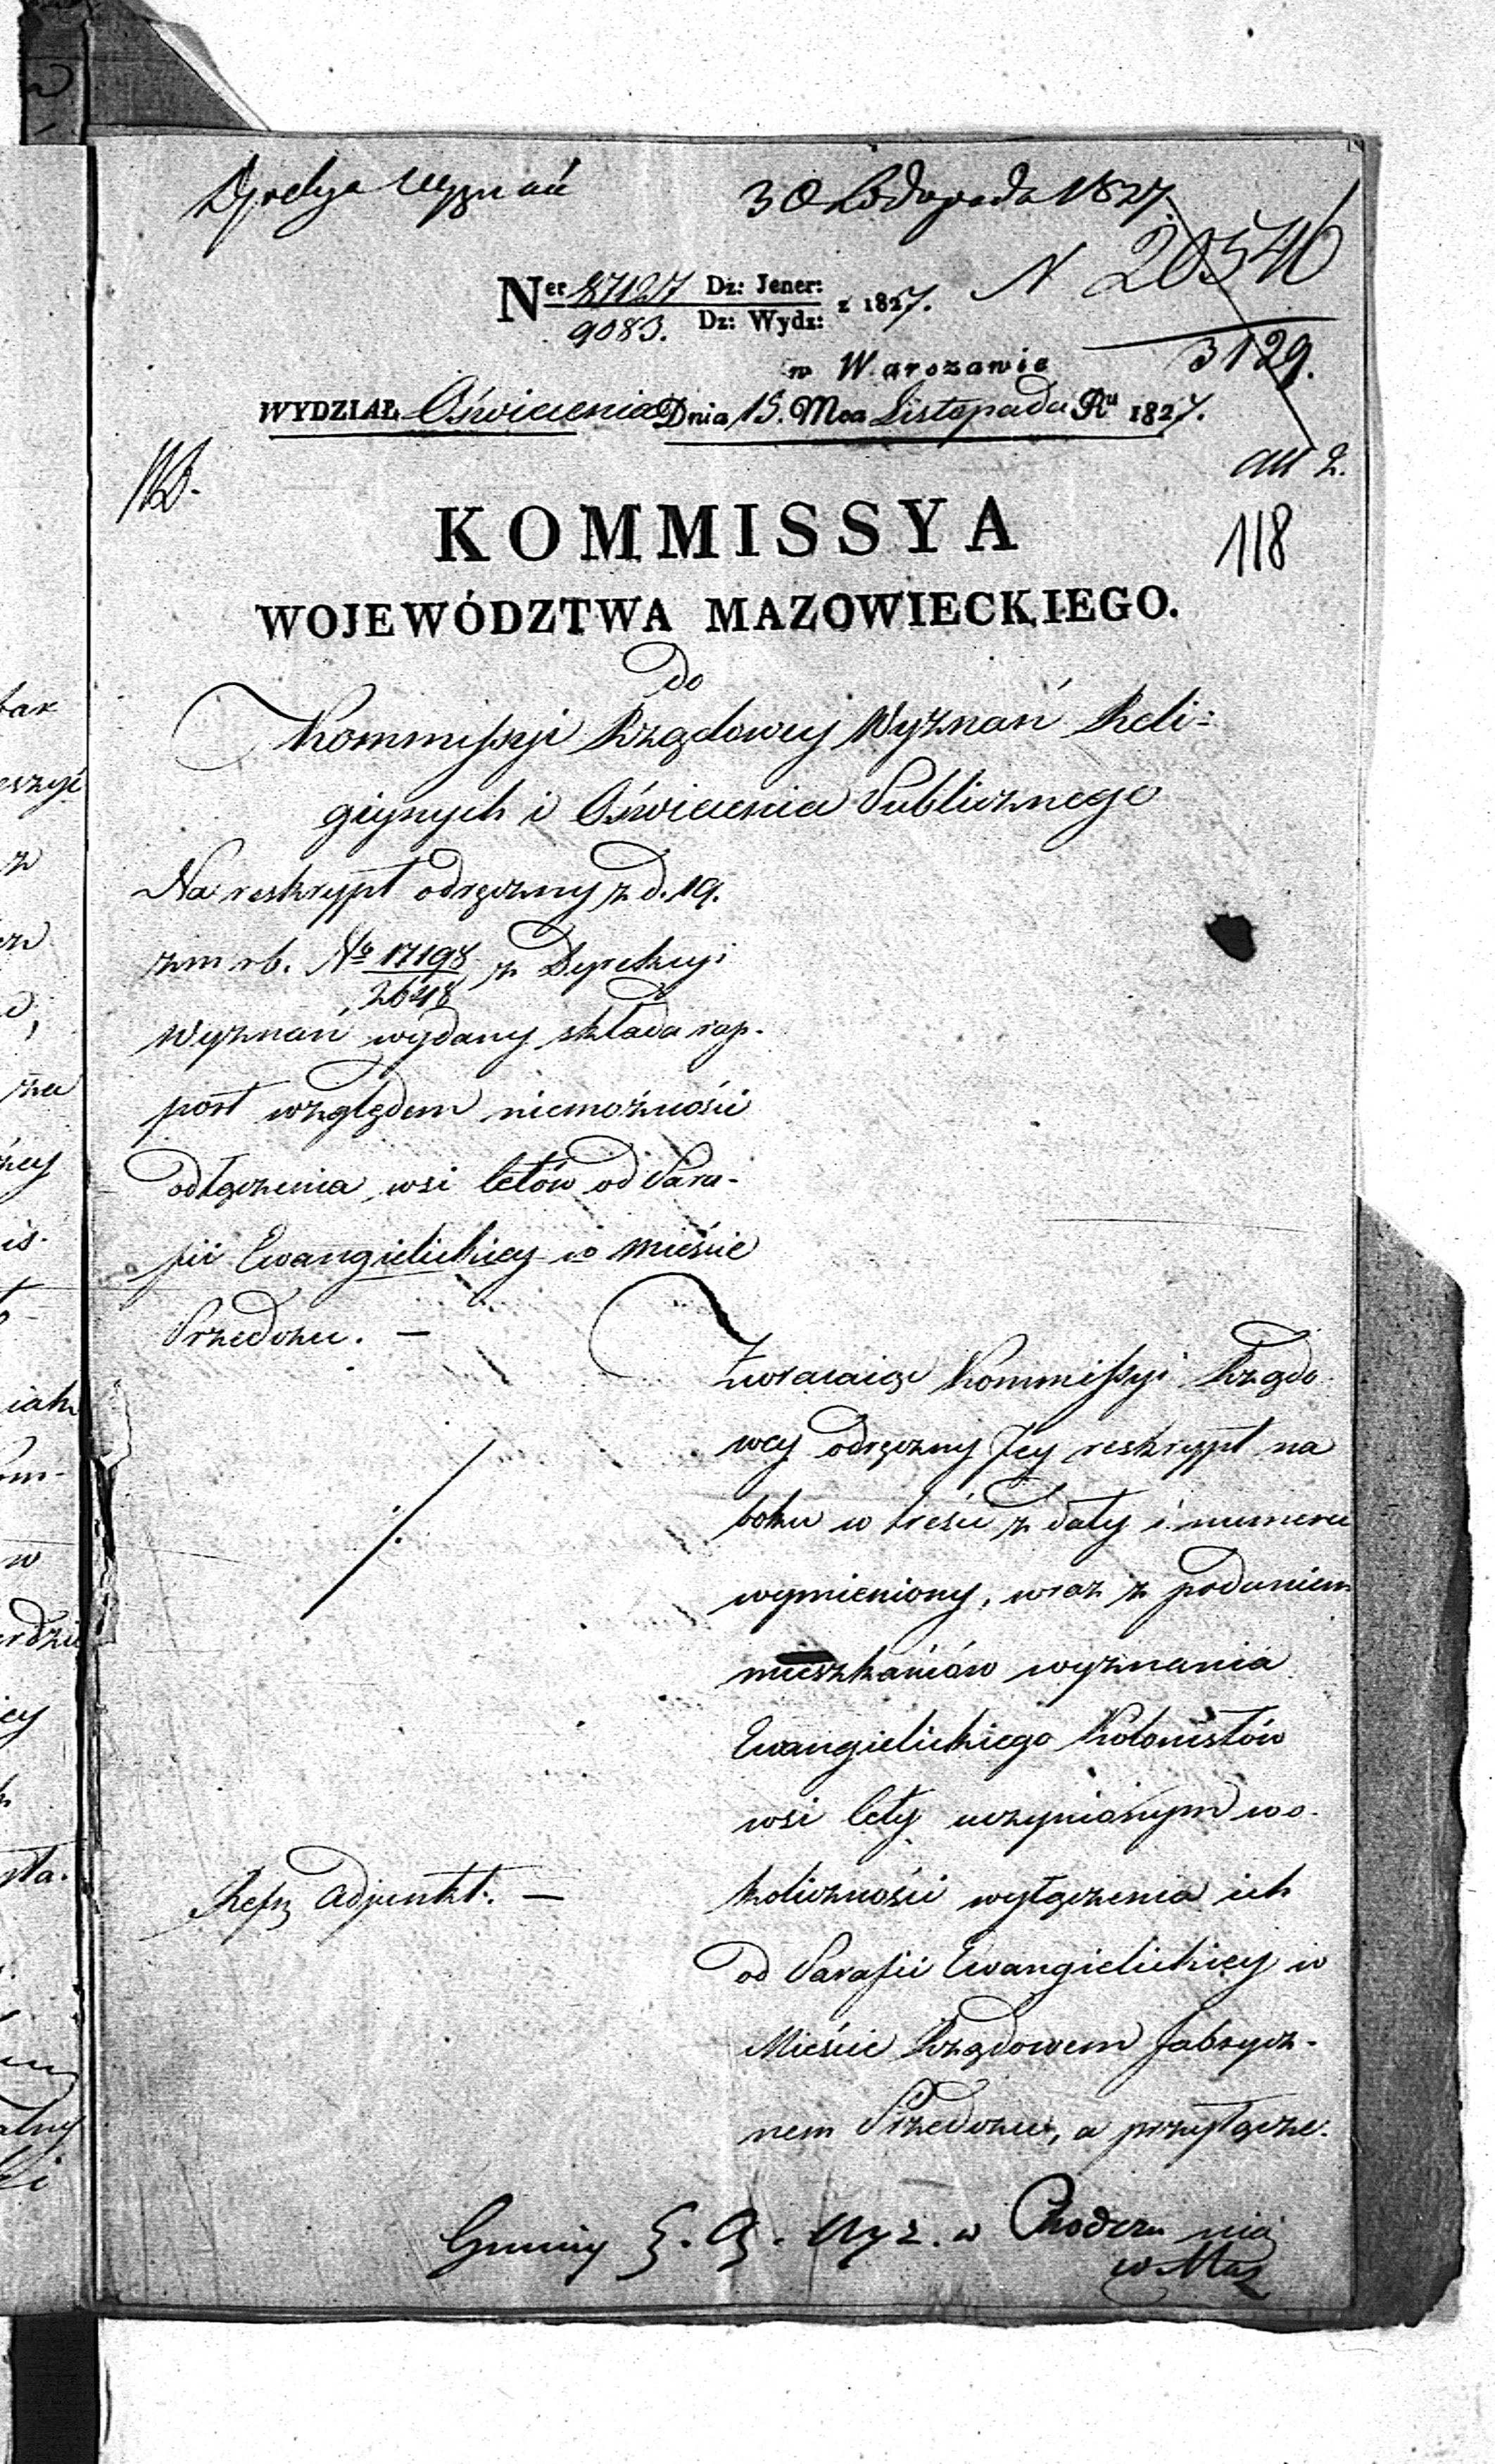 Dyrekcya Wyznań
30 Listopada 1827
N 20546
3129.
Ner 87127 Dz: Jener: z 1827.
9083. Dz: Wydz:
w Warszawie
WYDZIAŁ Oświecenia Dnia 15. Mca Listopada Ru 1827.
118
KOMMISSYA
WOJEWÓDZTWA MAZOWIECKIEGO.
Do
Kommissyi Rządowey Wyznań Reli-
giynych i Oświecenia Publicznego
Na reskrypt odręczny z d. 19.
zm rb. No 17198 z Dyrekcyi
2618
Wyznań wydany składa rap-
port względem niemożności
odłączenia wsi Cetów od Para-
fii Ewangielickiey w mieście
Przedczu. —
Zwracaiąc Kommissyi Rządo-
wey odręczny Jey reskrypt na
boku w treści z daty i numeru
wymieniony, wraz z podaniem
mieszkańców wyznania
Ewangielickiego Kolonistów
wsi Cety uczynionym w o-
koliczności wyłączenia ich
od Parafii Ewangielickiey w
Mieście Rządowem fabrycz-
nem Przedczu, a przyłącze-
nia
Refz Adjunkt. —
Gminy E. A. Wyz. w Chodcz
w Maz